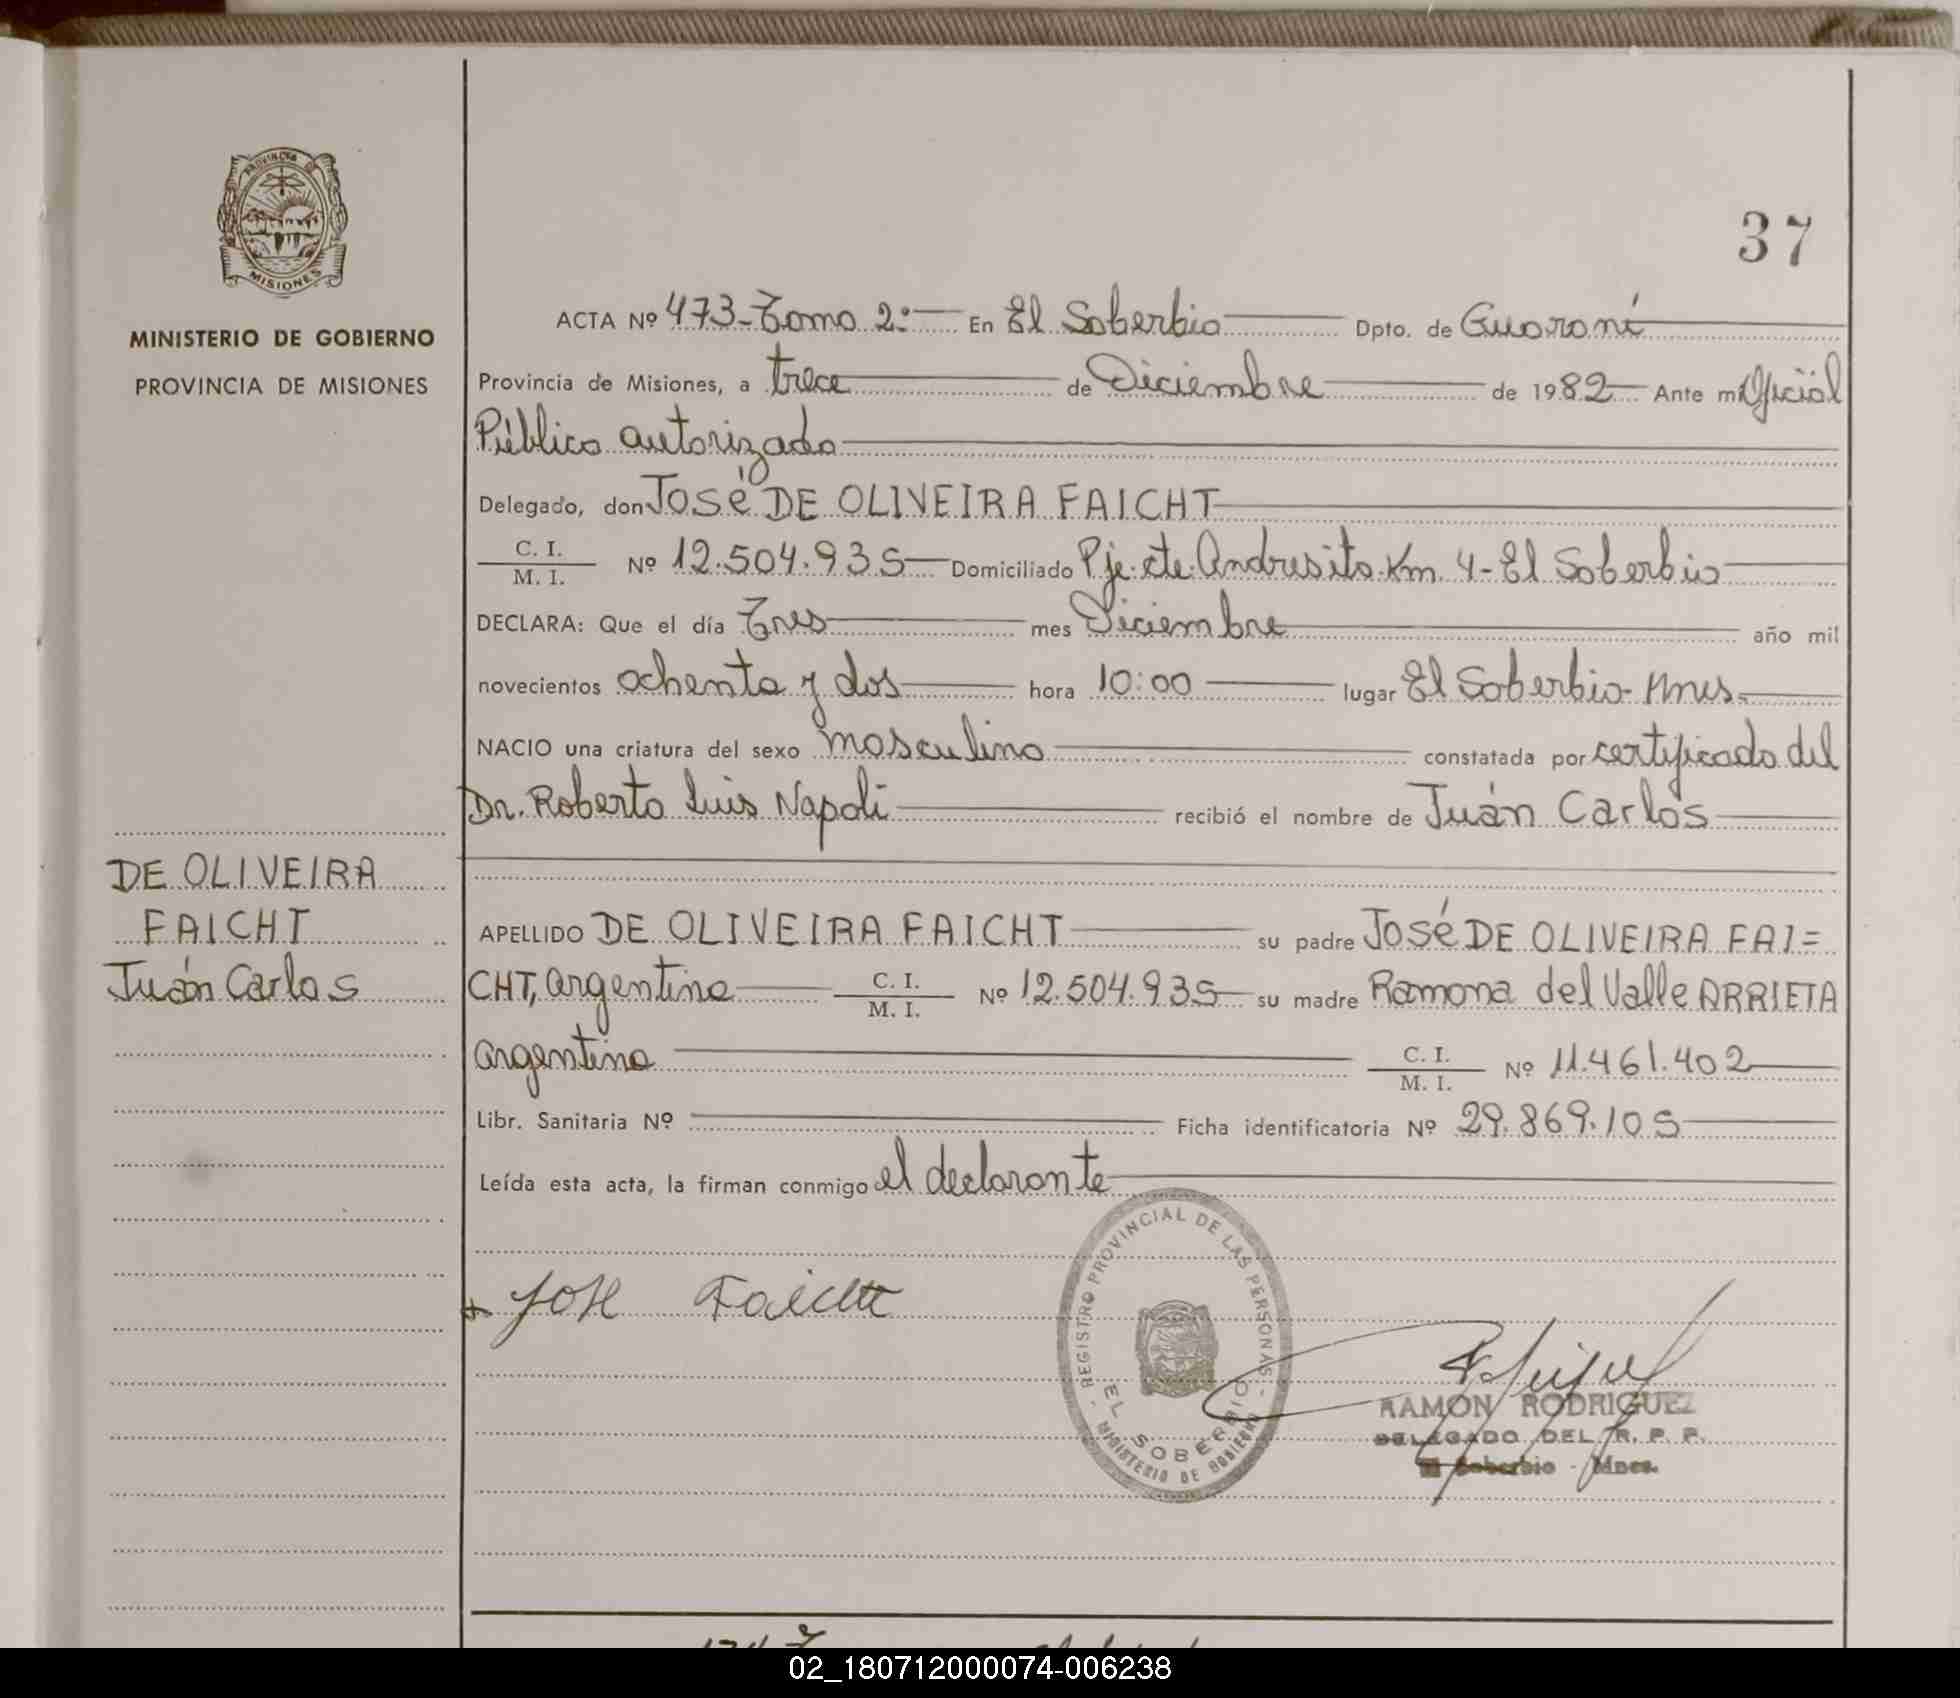 37
PROVINCIA DE
MISIONES
MINISTERIO DE GOBIERNO
PROVINCIA DE MISIONES
DE OLIVEIRA
FAICHT
Juán Carlos
ACTA Nº 473-Tomo 2º En El Soberbio Dpto. de Guaraní
Provincia de Misiones, a trece de Diciembre de 1982 Ante mí Oficial
Público autorizado
Delegado, don José DE OLIVEIRA FAICHT
C. I. / M. I. Nº 12.504.935 Domiciliado Pje. cte. Andresito Km. 4-El Soberbio
DECLARA: Que el día Tres mes Diciembre año mil
novecientos ochenta y dos hora 10:00 lugar El Soberbio-Mnes.
NACIO una criatura del sexo masculino constatada por certificado del
Dr. Roberto Luis Napoli recibió el nombre de Juán Carlos
APELLIDO DE OLIVEIRA FAICHT su padre José DE OLIVEIRA FAI=
CHT, argentino C. I. / M. I. Nº 12.504.935 su madre Ramona del Valle ARRIETA
argentina C. I. / M. I. Nº 11.461.402
Libr. Sanitaria Nº Ficha identificatoria Nº 29.869.105
Leída esta acta, la firman conmigo el declarante
José Faicht
- REGISTRO PROVINCIAL DE LAS PERSONAS -
EL SOBERBIO
MINISTERIO DE GOBIERNO
RAMON RODRIGUEZ
DELEGADO DEL R. P. P.
El Soberbio - Mnes.
02_180712000074-006238